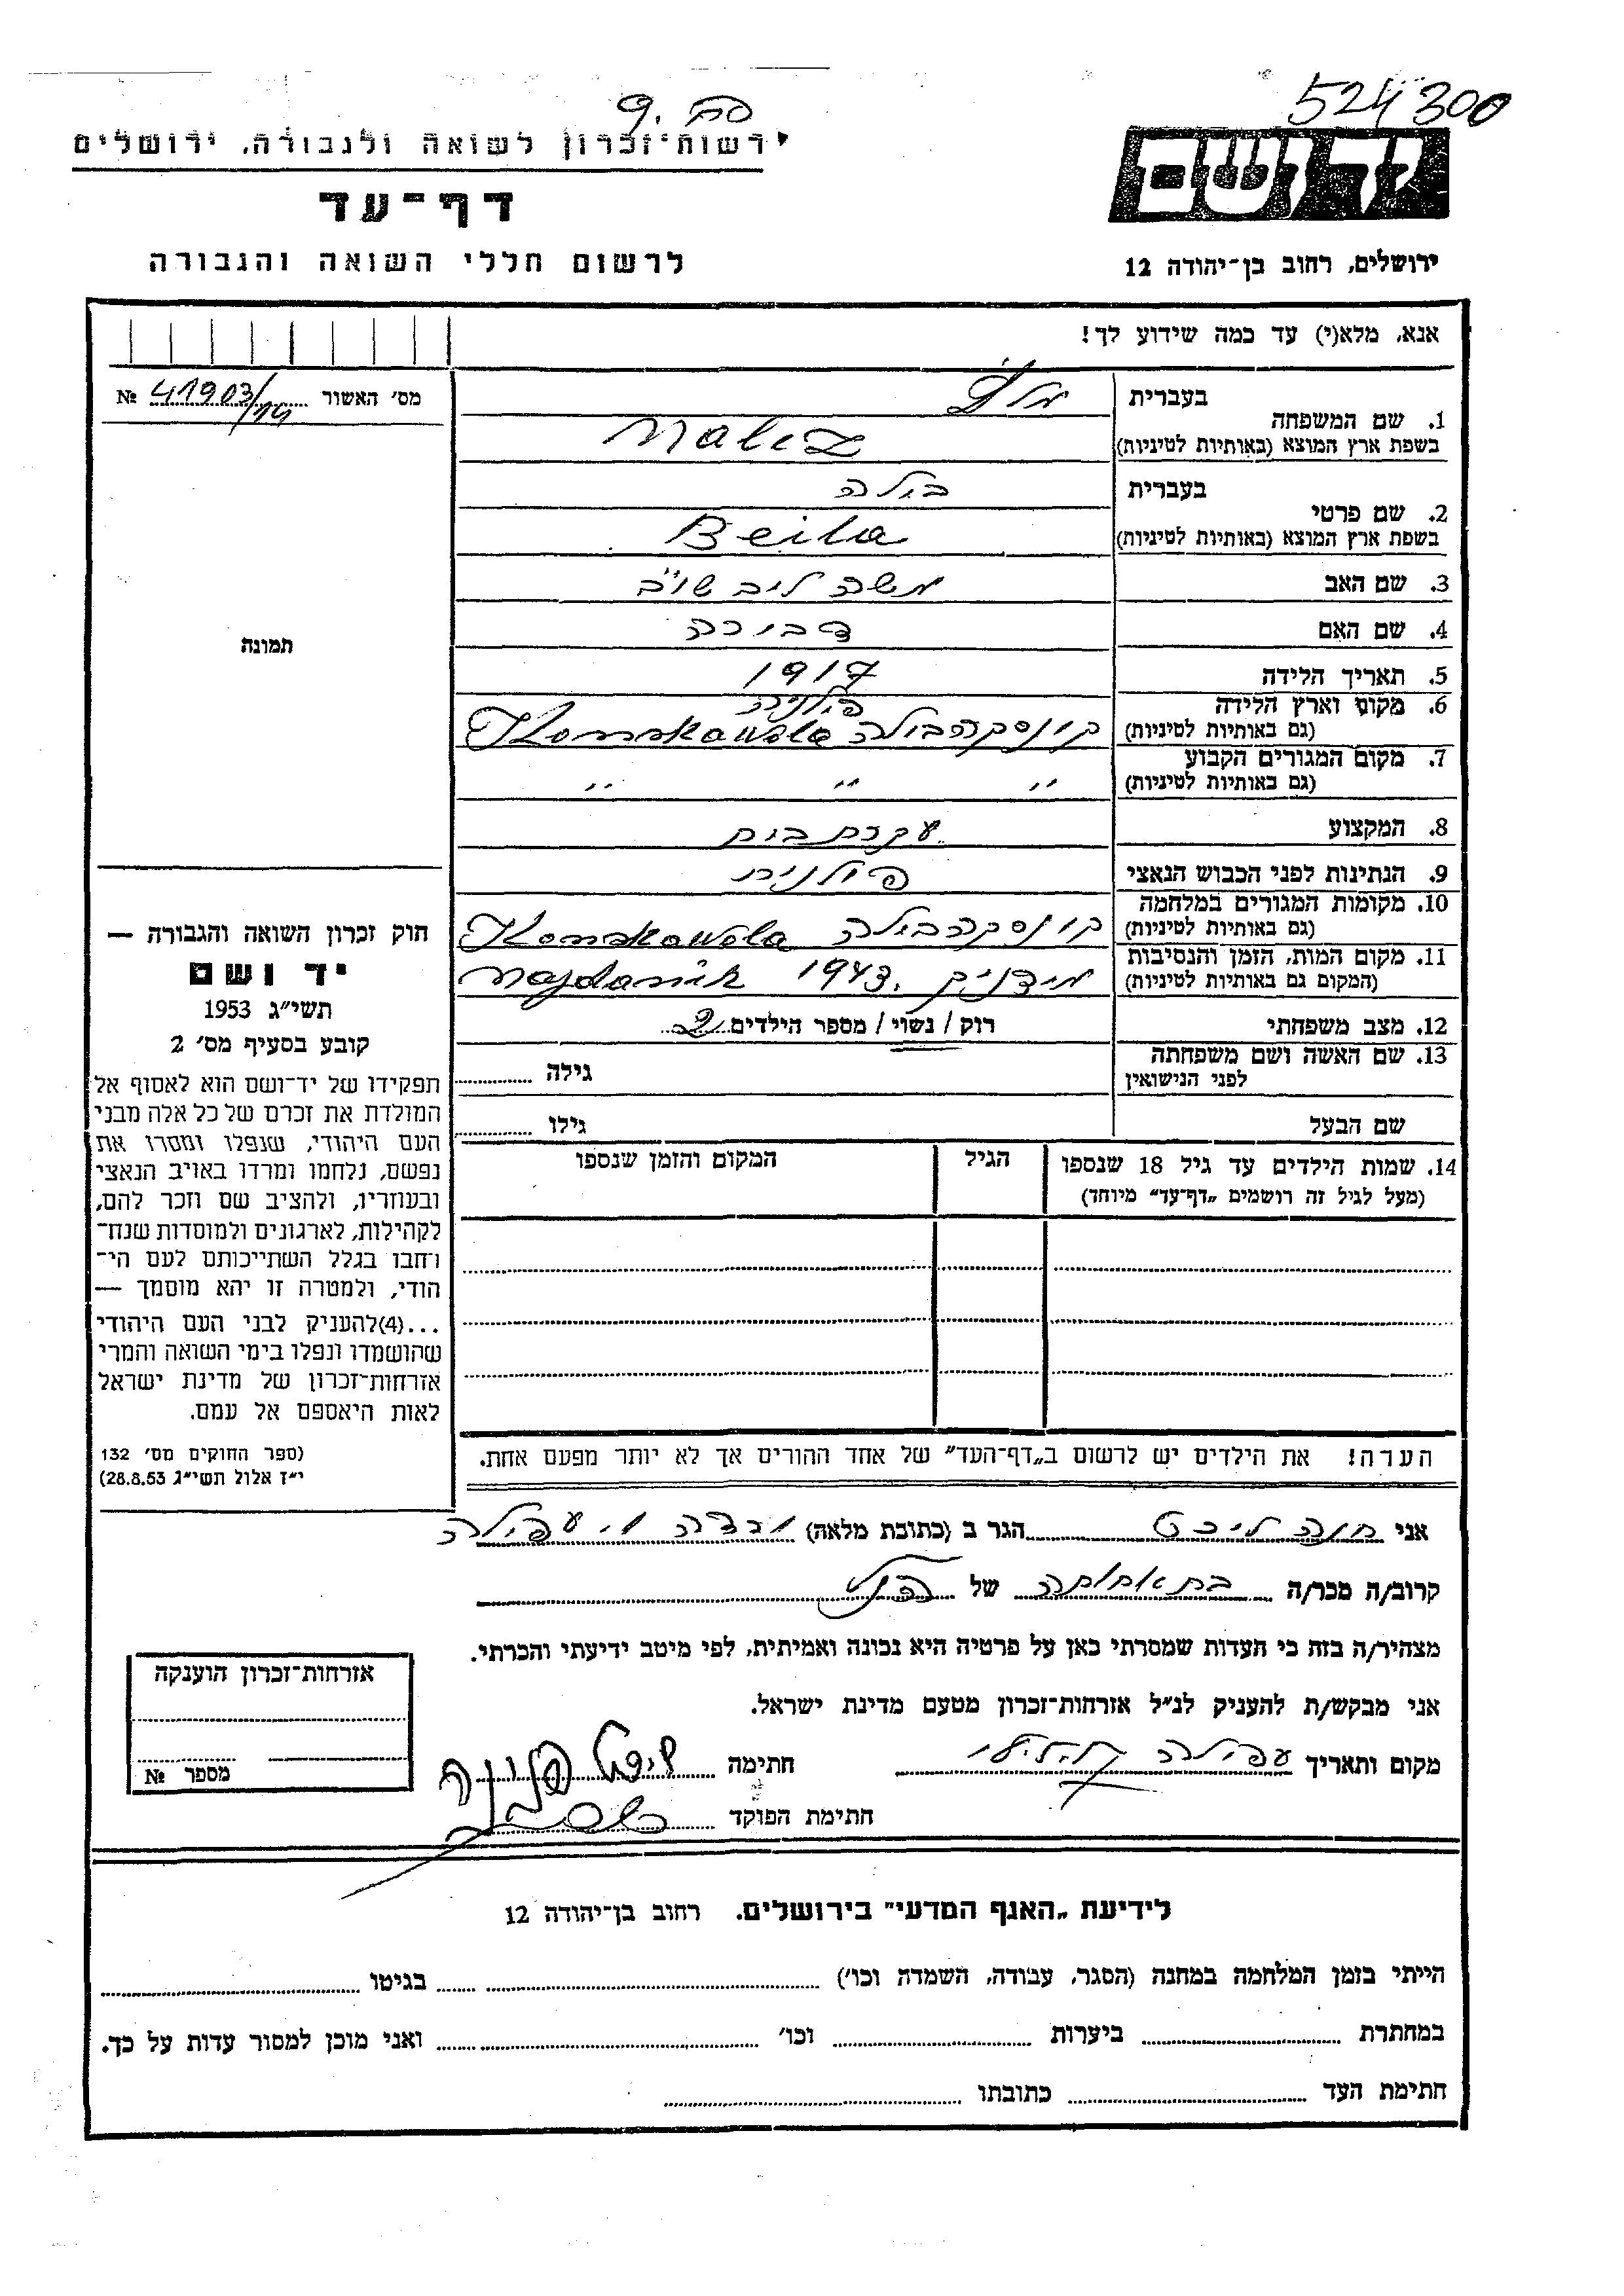 524300
רשות־זכרון לשואה ולגבורה, ירושלים
דף־עד
לרשום חללי השואה והגבורה
ירושלים, רחוב בן־יהודה 12
אנא, מלא(י) עד כמה שידוע לך!
מס׳ האשור № 41903/14
תמונה
1. שם המשפחה
בעברית
בשפת ארץ המוצא (באותיות לטיניות) Malcz
2. שם פרטי
בעברית בילה
בשפת ארץ המוצא (באותיות לטיניות) Beila
3. שם האב משה ליב שו״ב
4. שם האם דבורה
5. תאריך הלידה 1917
6. מקום וארץ הלידה פולניה
(גם באותיות לטיניות) קונסקהבולה Konskawola
7. מקום המגורים הקבוע
(גם באותיות לטיניות) ״ ״ ״
8. המקצוע עקרת בית
9. הנתינות לפני הכבוש הנאצי פולנית
10. מקומות המגורים במלחמה
(גם באותיות לטיניות) קונסקהבולה Konskawola
11. מקום המות, הזמן והנסיבות
(המקום גם באותיות לטיניות) מידניק, 1943 Majdanik
12. מצב משפחתי רוק / נשוי / מספר הילדים 2
13. שם האשה ושם משפחתה
לפני הנישואין גילה
שם הבעל גילו
14. שמות הילדים עד גיל 18 שנספו הגיל המקום והזמן שנספו
(מעל לגיל זה רושמים „דף־עד״ מיוחד)
הערה! את הילדים יש לרשום ב„דף־העד״ של אחד ההורים אך לא יותר מפעם אחת.
חוק זכרון השואה והגבורה —
יד ושם
תשי״ג 1953
קובע בסעיף מס׳ 2
תפקידו של יד־ושם הוא לאסוף אל
המולדת את זכרם של כל אלה מבני
העם היהודי, שנפלו ומסרו את
נפשם, נלחמו ומרדו באויב הנאצי
ובעוזריו, ולהציב שם וזכר להם,
לקהילות, לארגונים ולמוסדות שנח־
רחבו בגלל השתייכותם לעם הי־
הודי, ולמטרה זו יהא מוסמך —
...(4)להעניק לבני העם היהודי
שהושמדו ונפלו בימי השואה והמרי
אזרחות־זכרון של מדינת ישראל
לאות היאספם אל עמם.
(ספר החוקים מס׳ 132
י״ז אלול תשי״ג 28.8.53)
אני חוה ליכט הגר ב (כתובת מלאה) עפולה
קרוב/ה מכר/ה בת אחותה של הנ״ל
מצהיר/ה בזה כי העדות שמסרתי כאן על פרטיה היא נכונה ואמיתית, לפי מיטב ידיעתי והכרתי.
אני מבקש/ת להעניק לנ״ל אזרחות־זכרון מטעם מדינת ישראל.
מקום ותאריך עפולה חתימה
חתימת הפוקד
אזרחות־זכרון הוענקה
מספר №
לידיעת „האגף המדעי״ בירושלים. רחוב בן־יהודה 12
הייתי בזמן המלחמה במחנה (הסגר, עבודה, השמדה וכו׳) בגיטו
במחתרת ביערות וכו׳ ואני מוכן למסור עדות על כך.
חתימת העד כתובתו